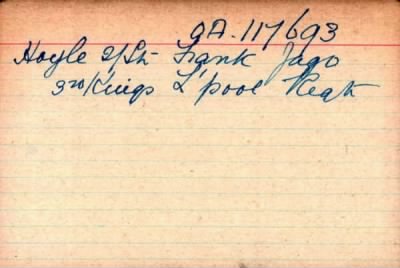 OA.117693
Hoyle 2/Lt Frank Jago
3rd/Kings L'pool Regt